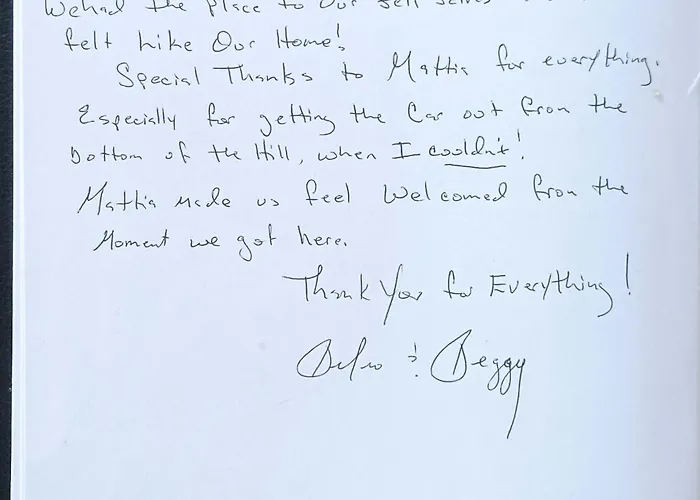 We had the place to Our self selves
felt Like Our Home!
Special Thanks to Mattia for everything.
Especially for getting the Car out from the
bottom of the Hill, when I couldn't!
Mattia made us feel Welcomed from the
Moment we got here.
Thank You for Everything!
& Peggy